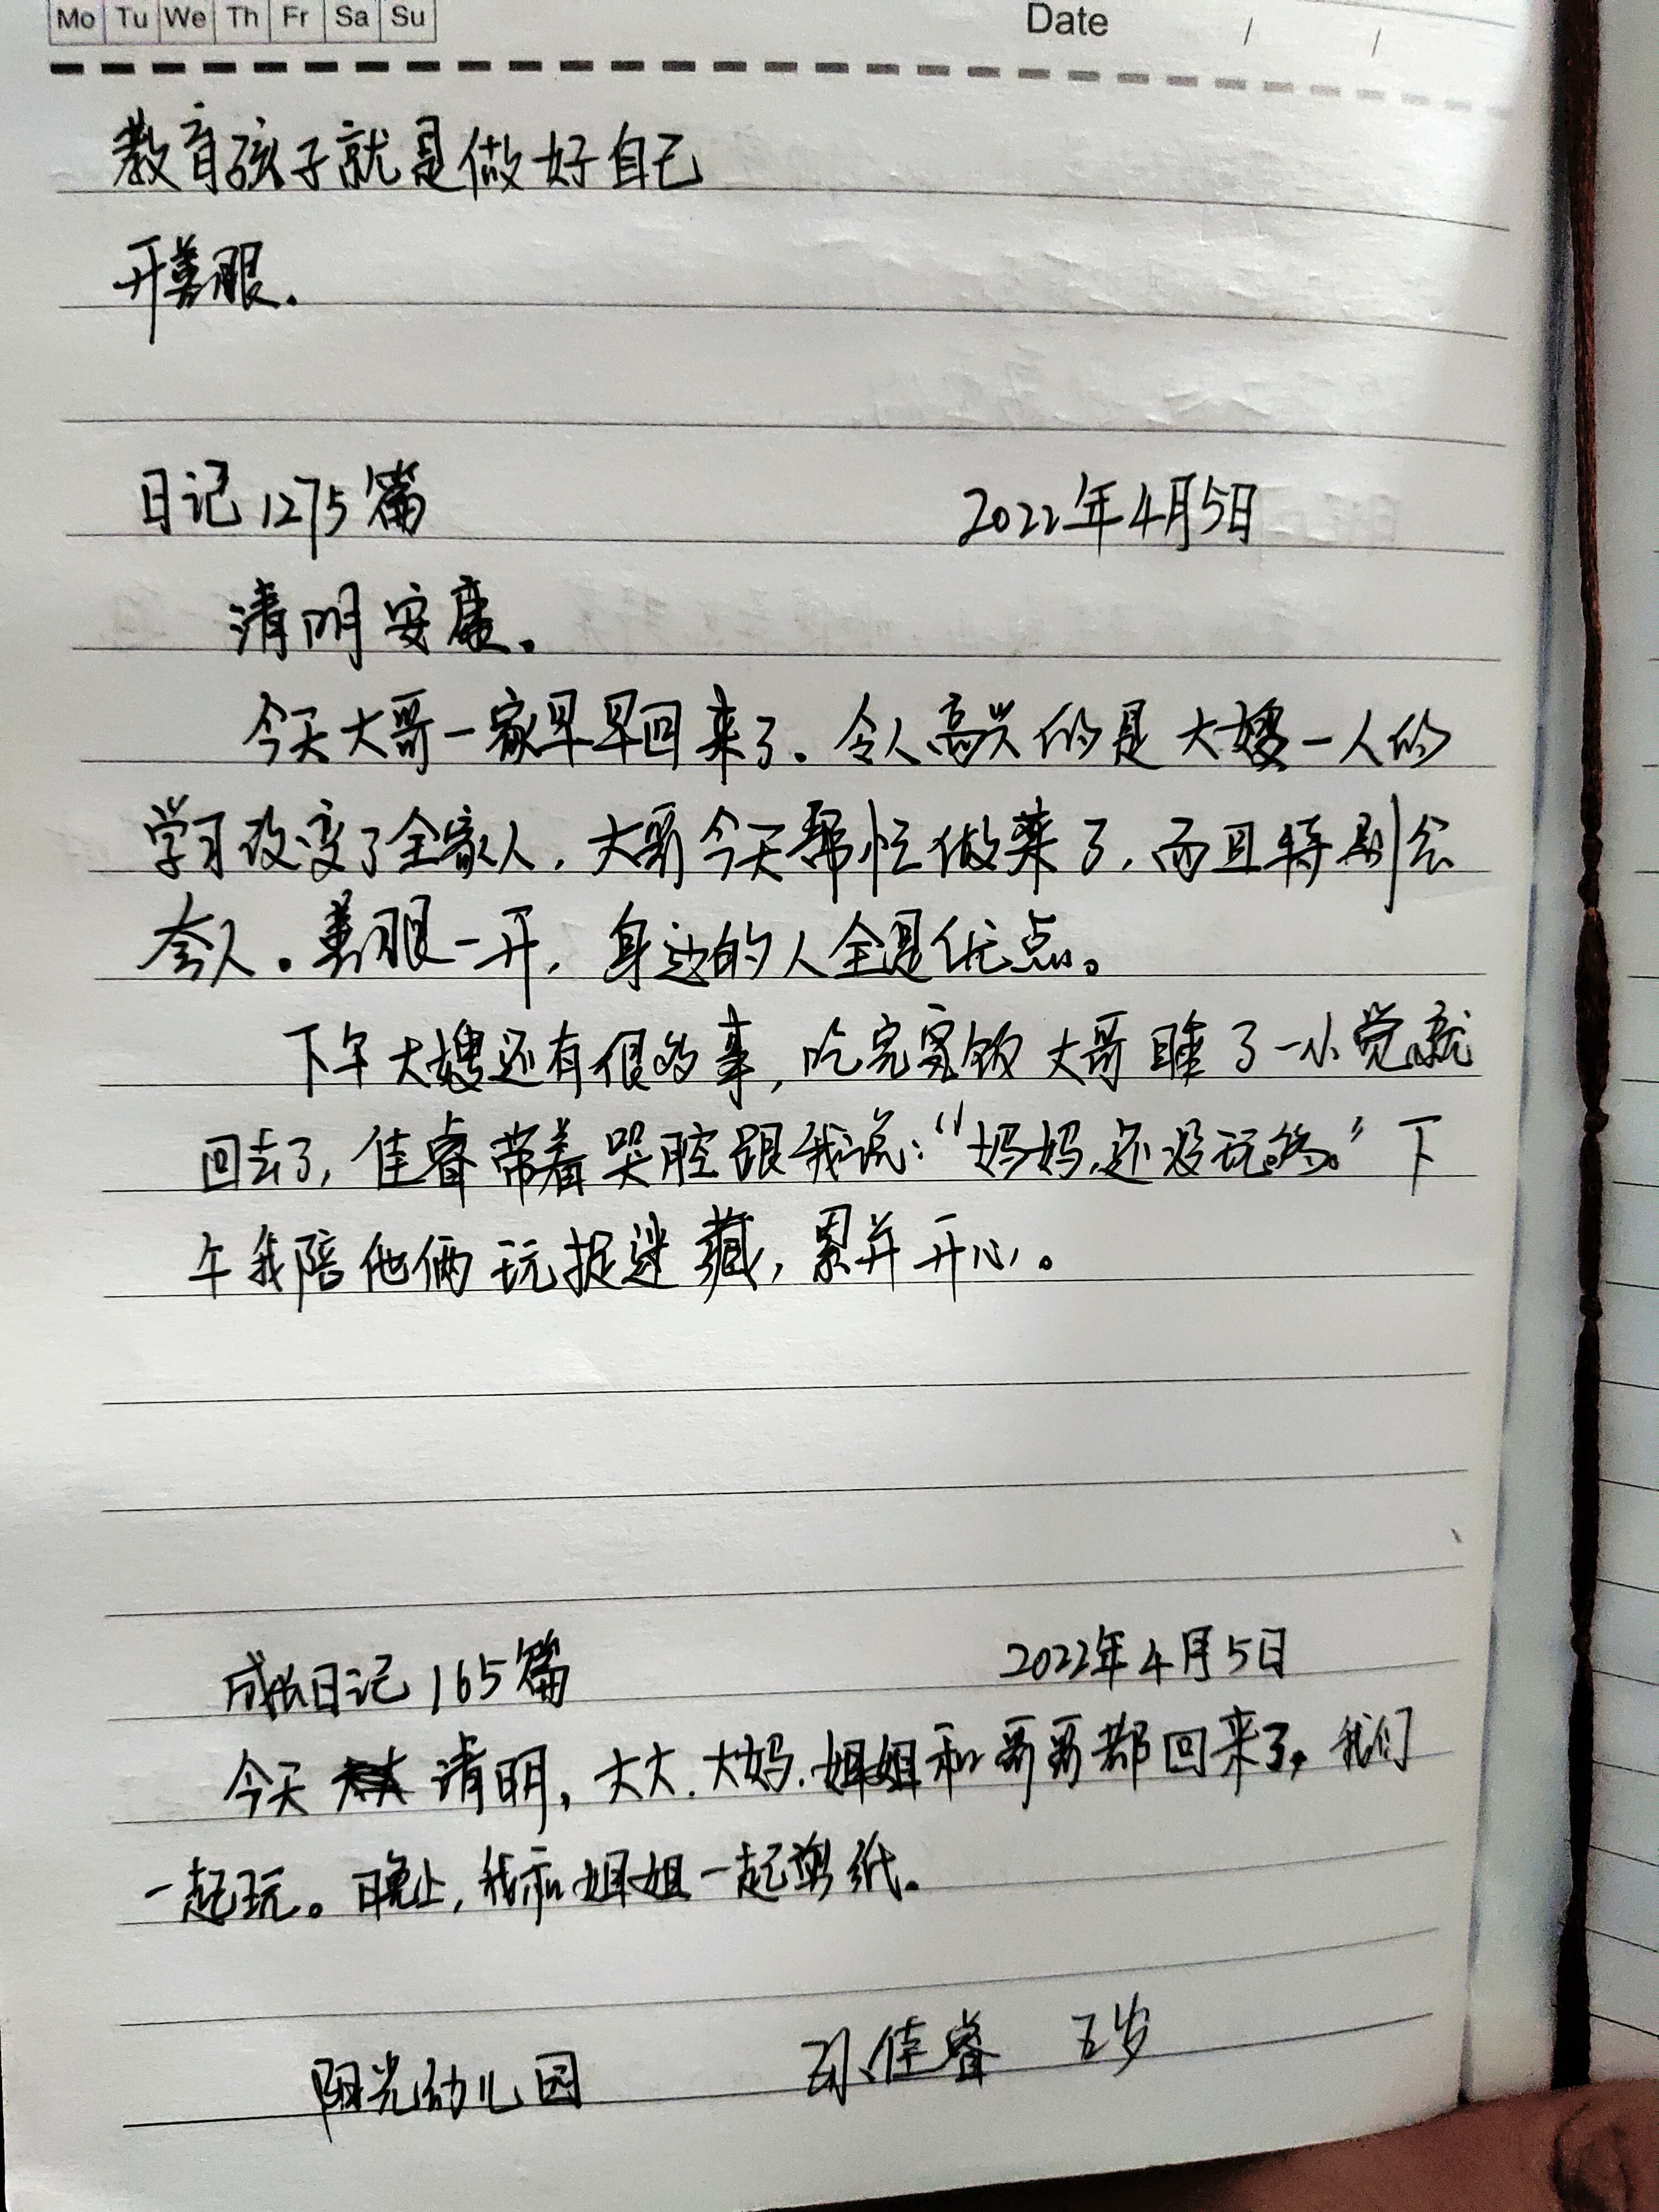 Mo Tu We Th Fr Sa Su Date / /
教育孩子就是做好自己
开善眼.
日记1275篇 2022年4月5日
清明安康。
今天大哥一家早早回来了。令人高兴的是大嫂一人的
学习改变了全家人,大哥今天帮忙做菜了,而且特别会
夸人。善眼一开,身边的人全是优点。
下午大嫂还有很多事,吃完饭大哥睡了一小觉就
回去了,佳睿带着哭腔跟我说:“妈妈,还没玩够。”下
午我陪他俩玩捉迷藏,累并开心。
成长日记165篇 2022年4月5日
今天 清明,大大.大妈.姐姐和哥哥都回来了,我们
一起玩。晚上,我和姐姐一起剪纸.
阳光幼儿园 孙佳睿 五岁